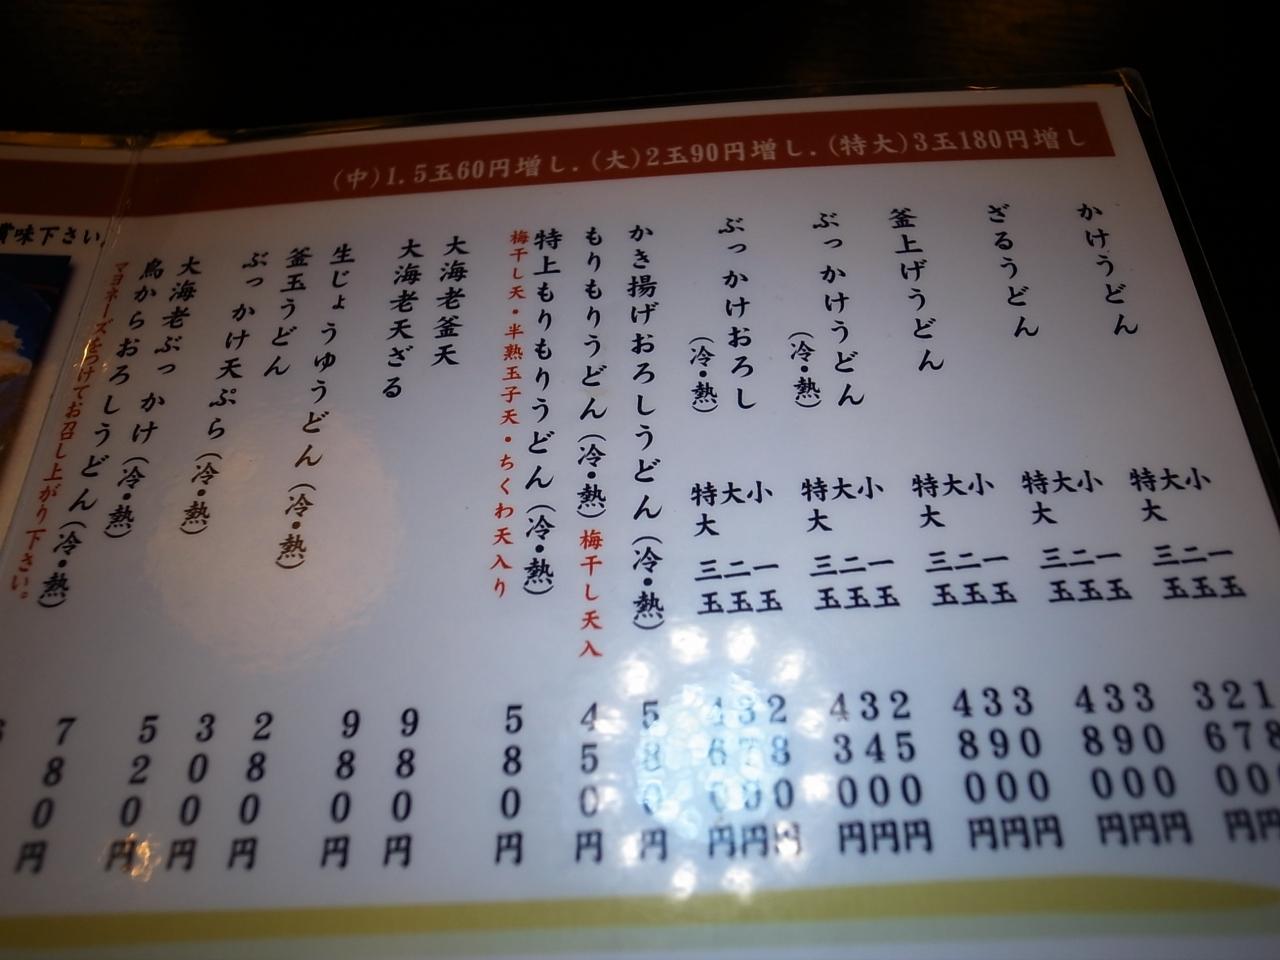 (中)1.5玉60円増し.(大)2玉90円増し.(特大)3玉180円増し
かけうどん
小一玉180円
大二玉270円
特大三玉360円
ざるうどん
小一玉300円
大二玉390円
特大三玉480円
釜上げうどん
小一玉300円
大二玉390円
特大三玉480円
ぶっかけうどん
(冷・熱)
小一玉250円
大二玉340円
特大三玉430円
ぶっかけおろし
(冷・熱)
小一玉280円
大二玉370円
特大三玉460円
かき揚げおろしうどん(冷・熱) 580円
もりもりうどん(冷・熱)梅干し天入 450円
特上もりもりうどん(冷・熱) 580円
梅干し天・半熟玉子天・ちくわ天入り
大海老釜天 980円
大海老天ざる 980円
生じょうゆうどん(冷・熱) 280円
釜玉うどん 300円
ぶっかけ天ぷら(冷・熱) 520円
大海老ぶっかけ(冷・熱) 780円
鳥からおろしうどん(冷・熱)
マヨネーズをつけてお召し上がり下さい。
賞味下さい。